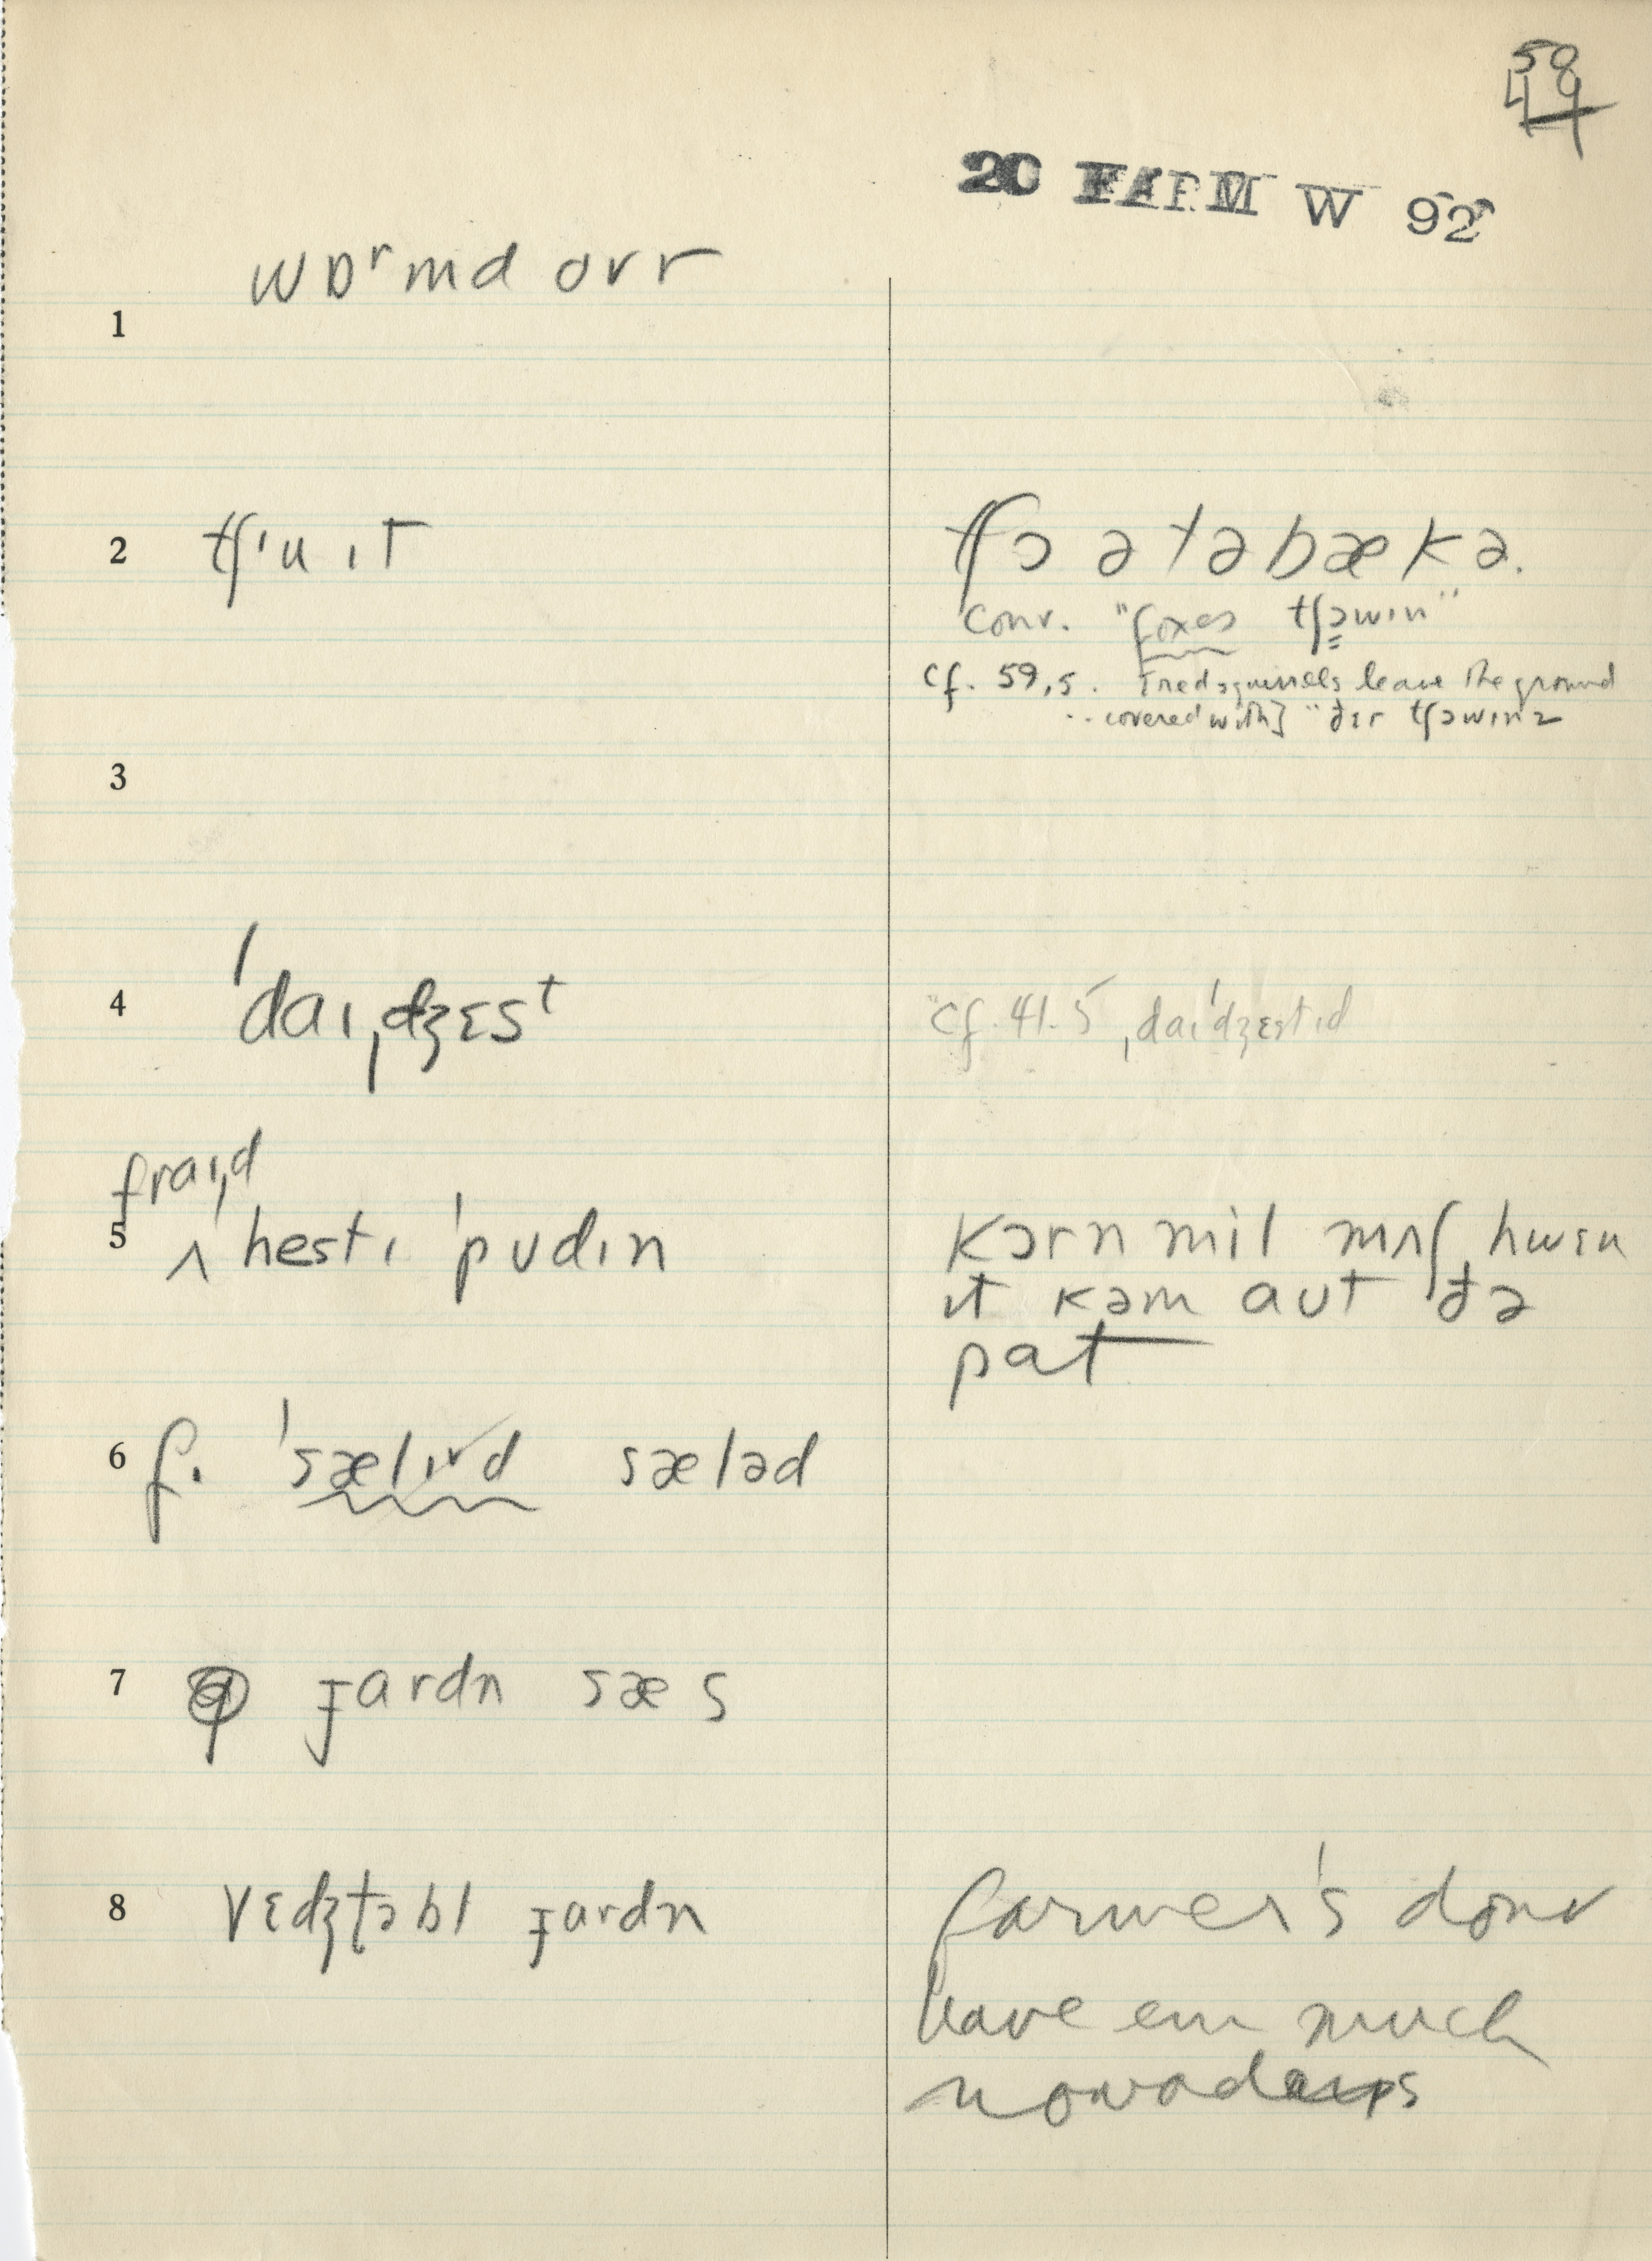 58
49
20 FARM W 92
wɒʳmd ovr
1
2 tʃ'u ɪt
tʃɔ ə təbækə.
conv. "foxes tʃɔwɪn"
cf. 59,5. squirrels leave the ground
.. covered with] "ðɛr tʃɔwɪnz
3
4 'daɪˌdʒɛst
cf. 41.5 ˌdaɪ'dʒɛstɪd
fraɪd
5 ʌ hestɪ 'pʊdɪn
kɔrn mil mʌʃ hwɛn
ɪt kəm aʊt ðə
pat
6 f. 'sælɪd sæləd
7 gardn sæs
8 vɛdʒtəbl gardn
farmer's dont
have em much
nowadays